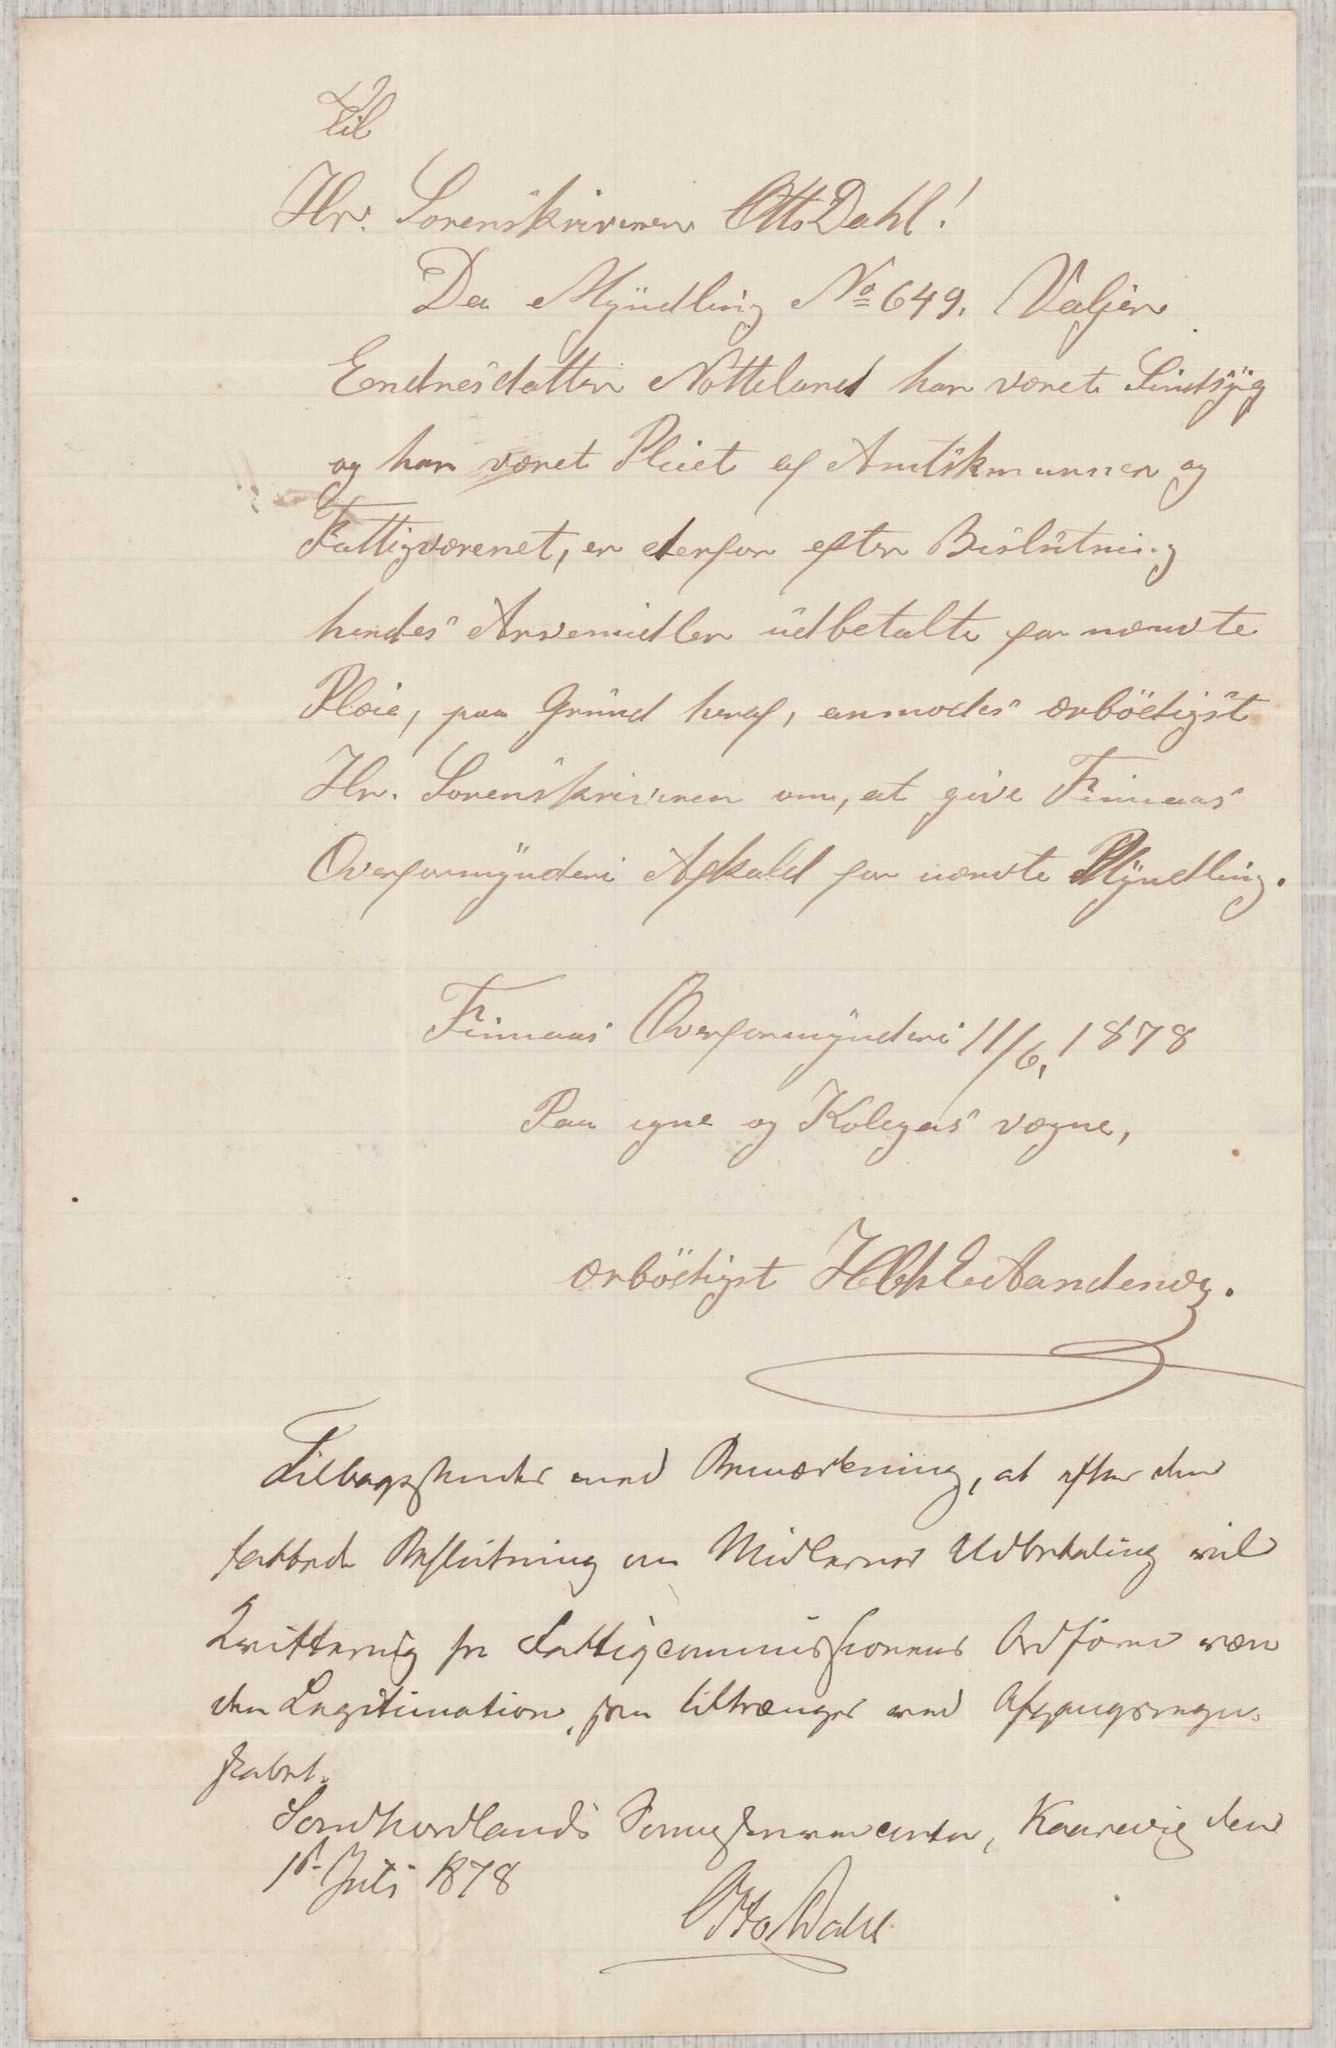 Til
Hr. Sorenskriveren Otto Dahl!
Da Myndling No 649. Valjer
Endresdatter Notteland har været Sindsyg
og har været Pleiet af Amtskmunnen og
Fattigværenet, er derfor efter Beslutning
hendes Arvemidler udbetalte for nævnte
Pleie, paa Grund heraf, anmodes ærbödigst
Hr. Sorenskriveren om, at give Finnaas
Overformynderi Afkald for nævnte Myndling.
Finnaas Overformynderi 11/6. 1878
Paa egne og Kolegas vegne,
ærbödigst
Tilbagesendes med Bemærkning, at efter den
fattede Beslutning om Midlernes Udbetaling vil
Qvittering fra Fattigcommissionens Ordförer være
den Legitimation, som tiltrænges ved Afgangsregn-
skabet.
Söndhordlands Sorenskrivercontor, Kaarevig den
1st Juli 1878
Otto Dahl